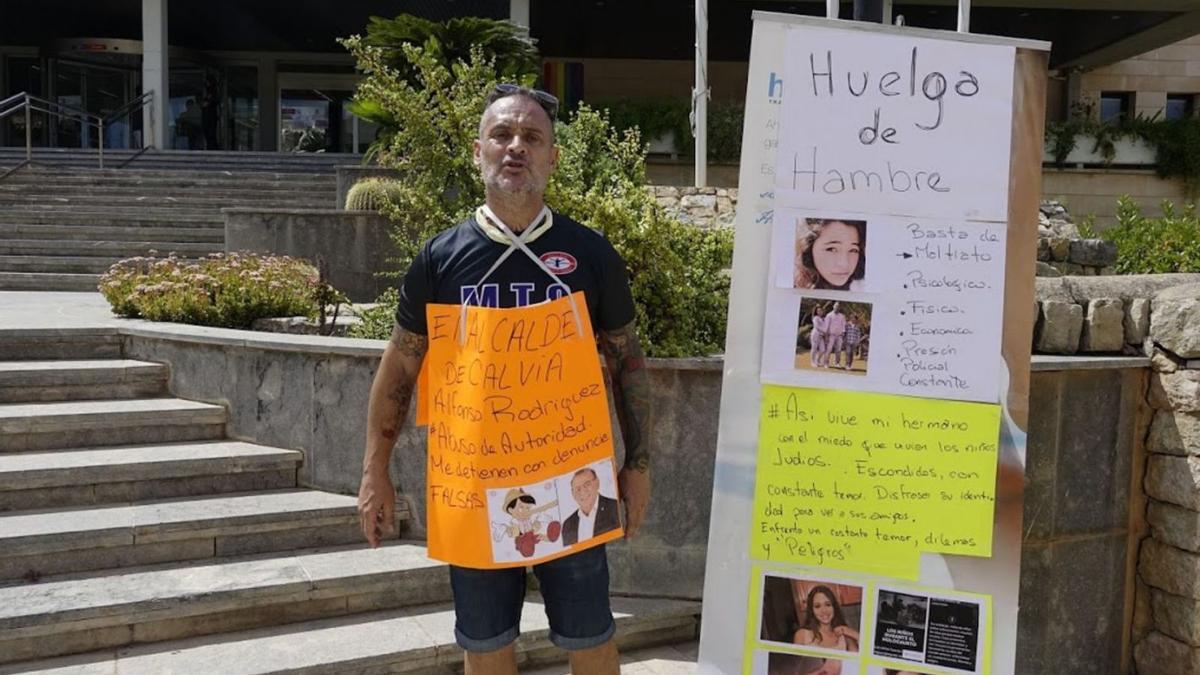 Huelga
de
Hambre
Basta de
Maltrato
Psicologico.
Fisico.
Economica
Presión
Policial
Constante
#Asi vive mi hermano
con el miedo que vivien los niños
Judios. Escondidos, con
constante temor. Disfrasar su identi
dad para ver a sus amigos.
Enfrenta un costante temor, dilemas
y "Peligros"
LOS NIÑOS
DURANTE EL
HOLOCAUSTO
MTS
El ALCALDE
DE CALVIA
Alfonso Rodriguez
#Abuso de Autoridad.
Me detienen con denuncie
FALSAS